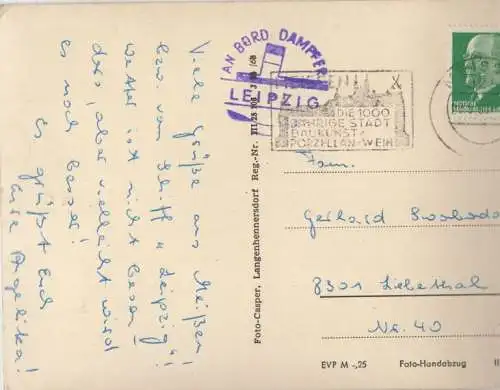 Viele Grüße aus Meißen!
bzw. vom Schiff "Leipzig"!
Wetter ist nicht beson-
ders, aber vielleicht wird
es noch besser!
Es grüßt Euch
Eure Angelika!
AN BORD DAMPFER
LEIPZIG
DIE 1000
JÄHRIGE STADT
BAUKUNST
PORZELLAN + WEIN
Foto-Casper, Langenhennersdorf Reg.-Nr.
Fam.
Gerhard Swoboda
8301 Liebethal
Nr. 40
EVP M -,25 Foto-Handabzug